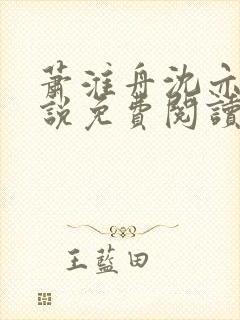 蕭淮舟沈亦
說免費閱讀
王藍田